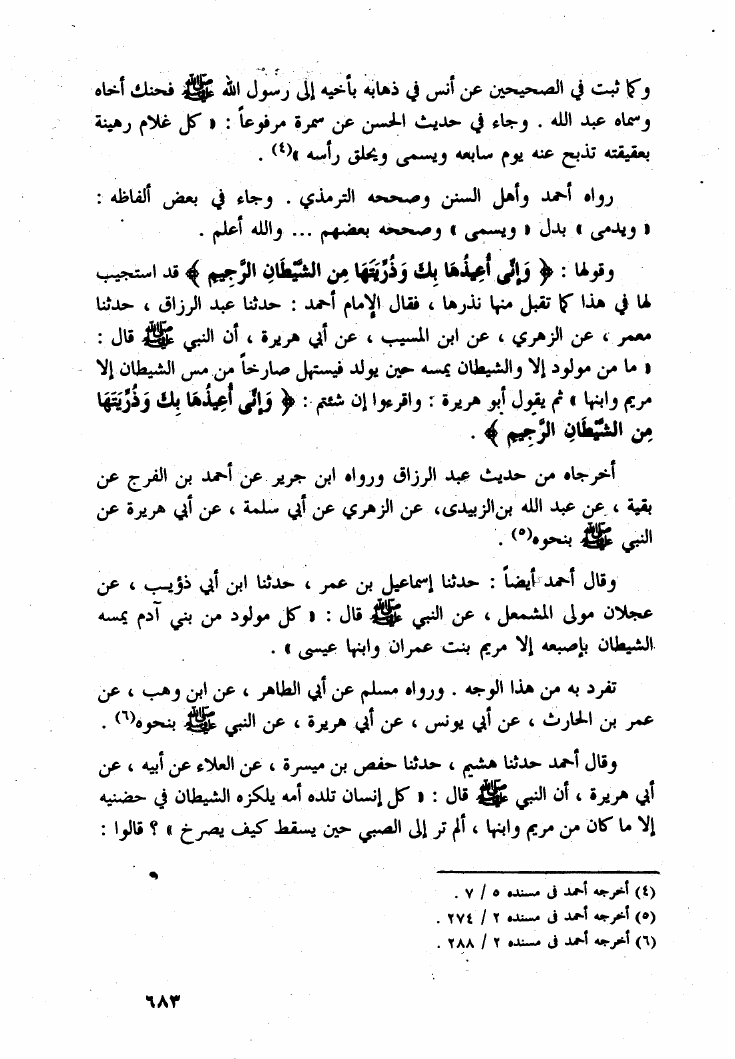 وكما ثبت في الصحيحين عن أنس في ذهابه بأخيه إلى رسول الله ﷺ فحنك أخاه
وسماه عبد الله . وجاء في حديث الحسن عن سمرة مرفوعاً : « كل غلام رهينة
بعقيقته تذبح عنه يوم سابعه ويسمى ويحلق رأسه »(٤) .
رواه أحمد وأهل السنن وصححه الترمذي . وجاء في بعض ألفاظه :
« ويدمى » بدل « ويسمى » وصححه بعضهم ... والله أعلم .
وقولها : ﴿ وَإِنِّي أُعِيذُهَا بِكَ وَذُرِّيَّتَهَا مِنَ الشَّيْطَانِ الرَّجِيمِ ﴾ قد استجيب
لها في هذا كما تقبل منها نذرها ، فقال الإمام أحمد : حدثنا عبد الرزاق ، حدثنا
معمر ، عن الزهري ، عن ابن المسيب ، عن أبي هريرة ، أن النبي ﷺ قال :
« ما من مولود إلا والشيطان يمسه حين يولد فيستهل صارخاً من مس الشيطان إلا
مريم وابنها » ثم يقول أبو هريرة : واقرءوا إن شئتم : ﴿ وَإِنِّي أُعِيذُهَا بِكَ وَذُرِّيَّتَهَا
مِنَ الشَّيْطَانِ الرَّجِيمِ ﴾ .
أخرجاه من حديث عبد الرزاق ورواه ابن جرير عن أحمد بن الفرج عن
بقية ، عن عبد الله بن الزبيدى، عن الزهري عن أبي سلمة ، عن أبي هريرة عن
النبي ﷺ بنحوه(٥) .
وقال أحمد أيضاً : حدثنا إسماعيل بن عمر ، حدثنا ابن أبي ذؤيب ، عن
عجلان مولى المشمعل ، عن النبي ﷺ قال : « كل مولود من بني آدم يمسه
الشيطان بإصبعه إلا مريم بنت عمران وابنها عيسى » .
تفرد به من هذا الوجه . ورواه مسلم عن أبي الطاهر ، عن ابن وهب ، عن
عمر بن الحارث ، عن أبي يونس ، عن أبي هريرة ، عن النبي ﷺ بنحوه(٦) .
وقال أحمد حدثنا هشيم ، حدثنا حفص بن ميسرة ، عن العلاء عن أبيه ، عن
أبي هريرة ، أن النبي ﷺ قال : « كل إنسان تلده أمه يلكزه الشيطان في حضنيه
إلا ما كان من مريم وابنها ، ألم تر إلى الصبي حين يسقط كيف يصرخ » ؟ قالوا :
(٤) أخرجه أحمد فى مسنده ٥ / ٧ .
(٥) أخرجه أحمد فى مسنده ٢ / ٢٧٤ .
(٦) أخرجه أحمد فى مسنده ٢ / ٢٨٨ .
٦٨٣